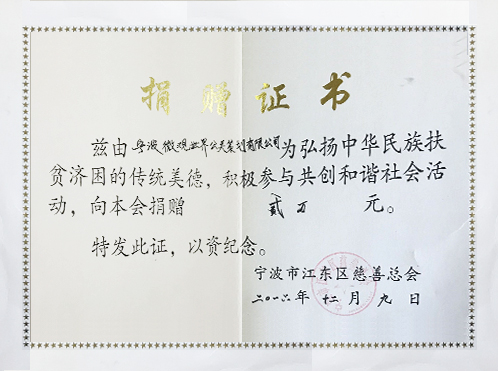 捐赠证书
兹由宁波微观世界公关策划有限公司为弘扬中华民族扶
贫济困的传统美德，积极参与共创和谐社会活
动，向本会捐赠 贰万 元。
特发此证，以资纪念。
宁波市江东区慈善总会
二〇一六年 十二月 九日